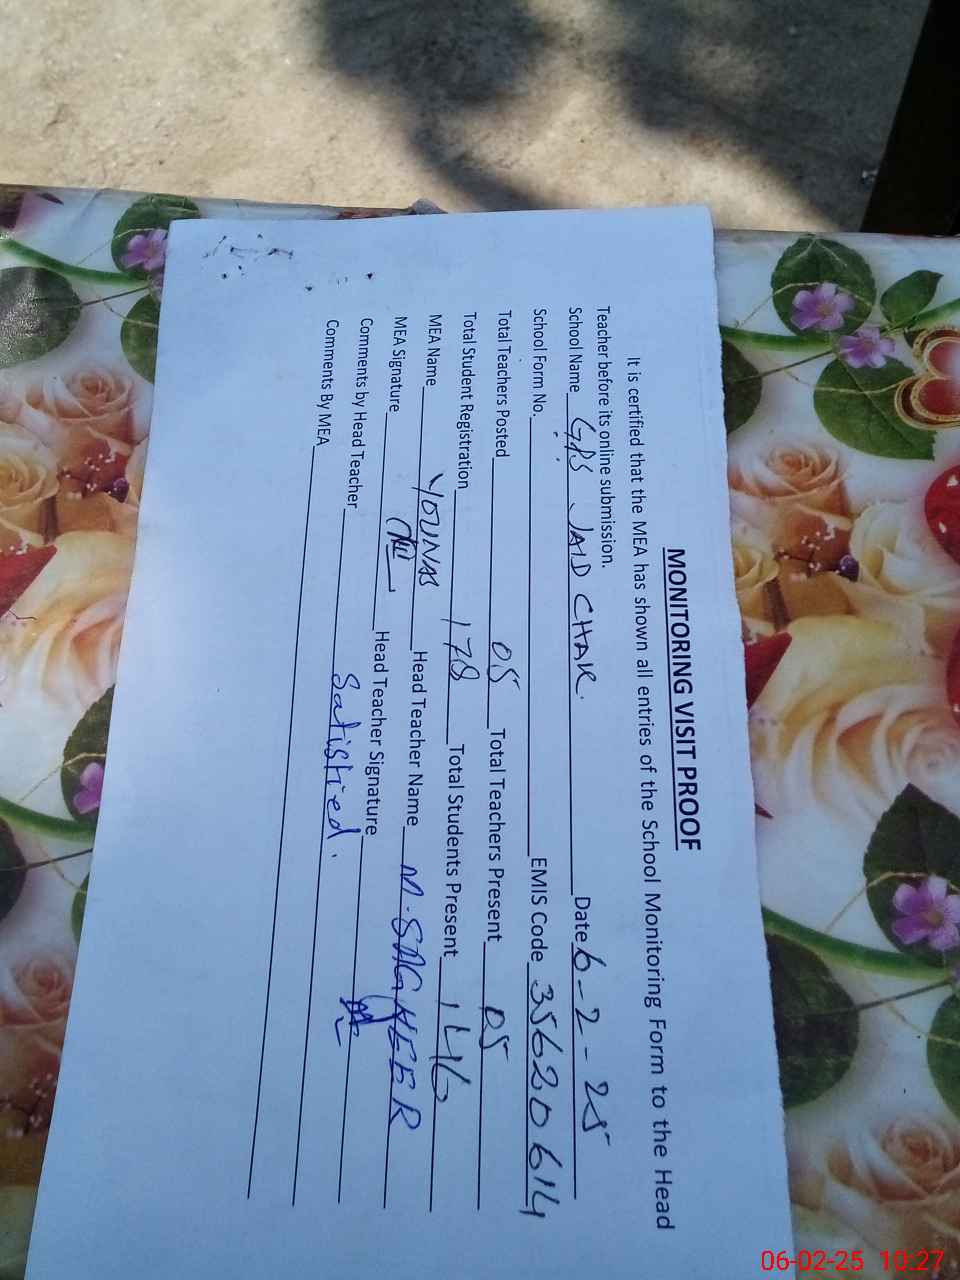 MONITORING VISIT PROOF
It is certified that the MEA has shown all entries of the School Monitoring Form to the Head
Teacher before its online submission.
School Name GPS JAID CHAK. Date 6-2-25
School Form No. EMIS Code 35620614
Total Teachers Posted 05 Total Teachers Present 05
Total Student Registration 178 Total Students Present 146
MEA Name YOUNAS Head Teacher Name M.SAGHEER
MEA Signature Head Teacher Signature
Comments by Head Teacher Satisfied.
Comments By MEA
06-02-25 10:27